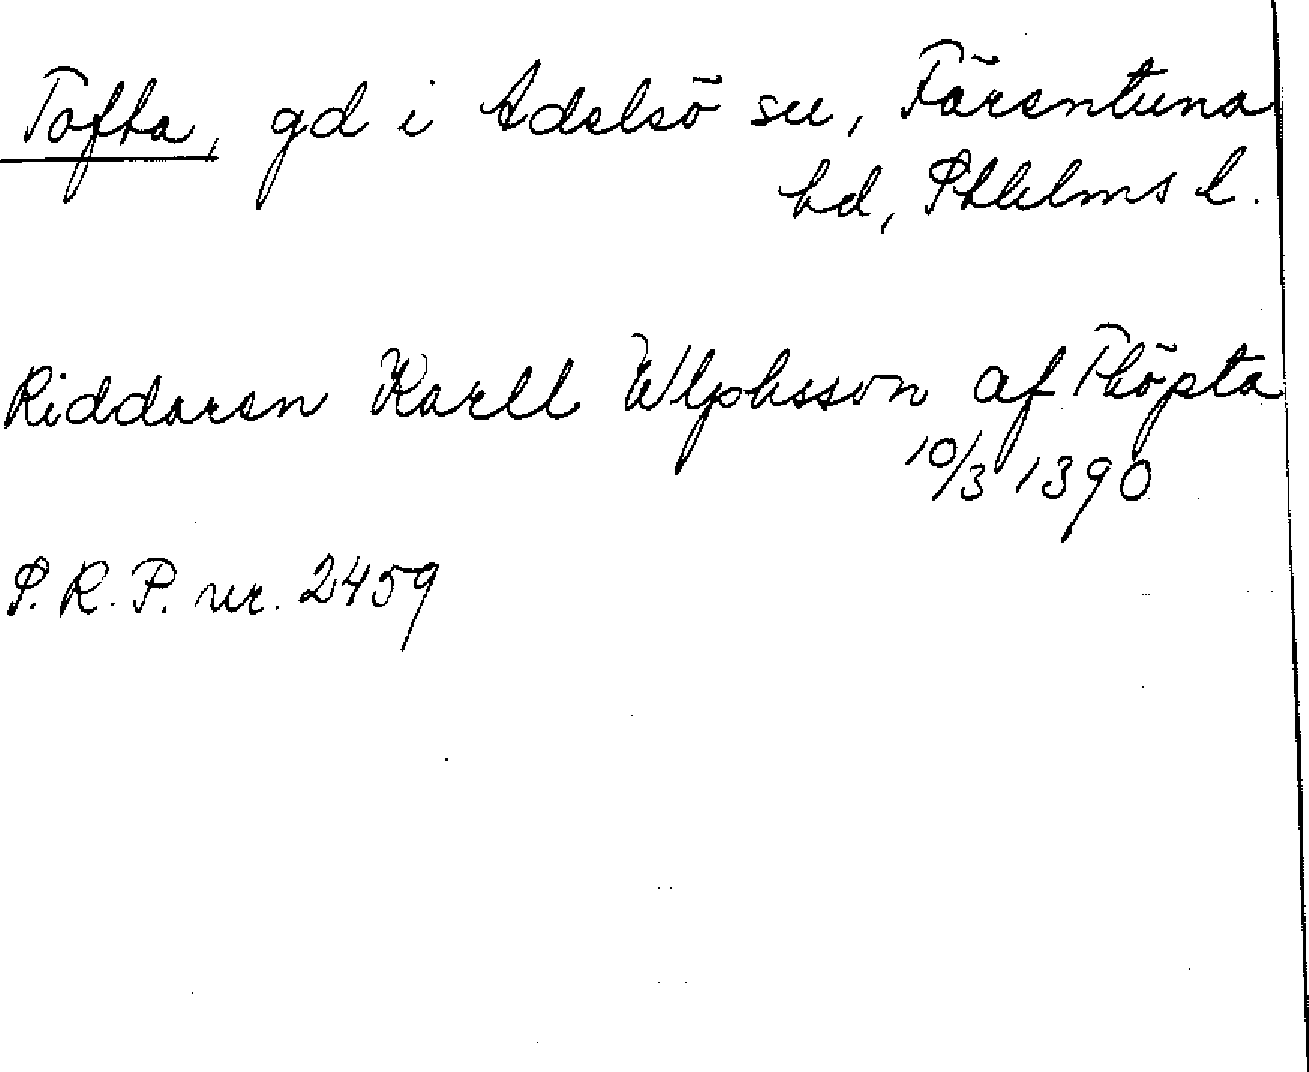 Tofta, gd i Adelsö sn, Färentuna
hd, Sthlms l.
Riddaren Karll Wlphsson af Thöpta
10/3 1390
S. R. P. nr. 2459